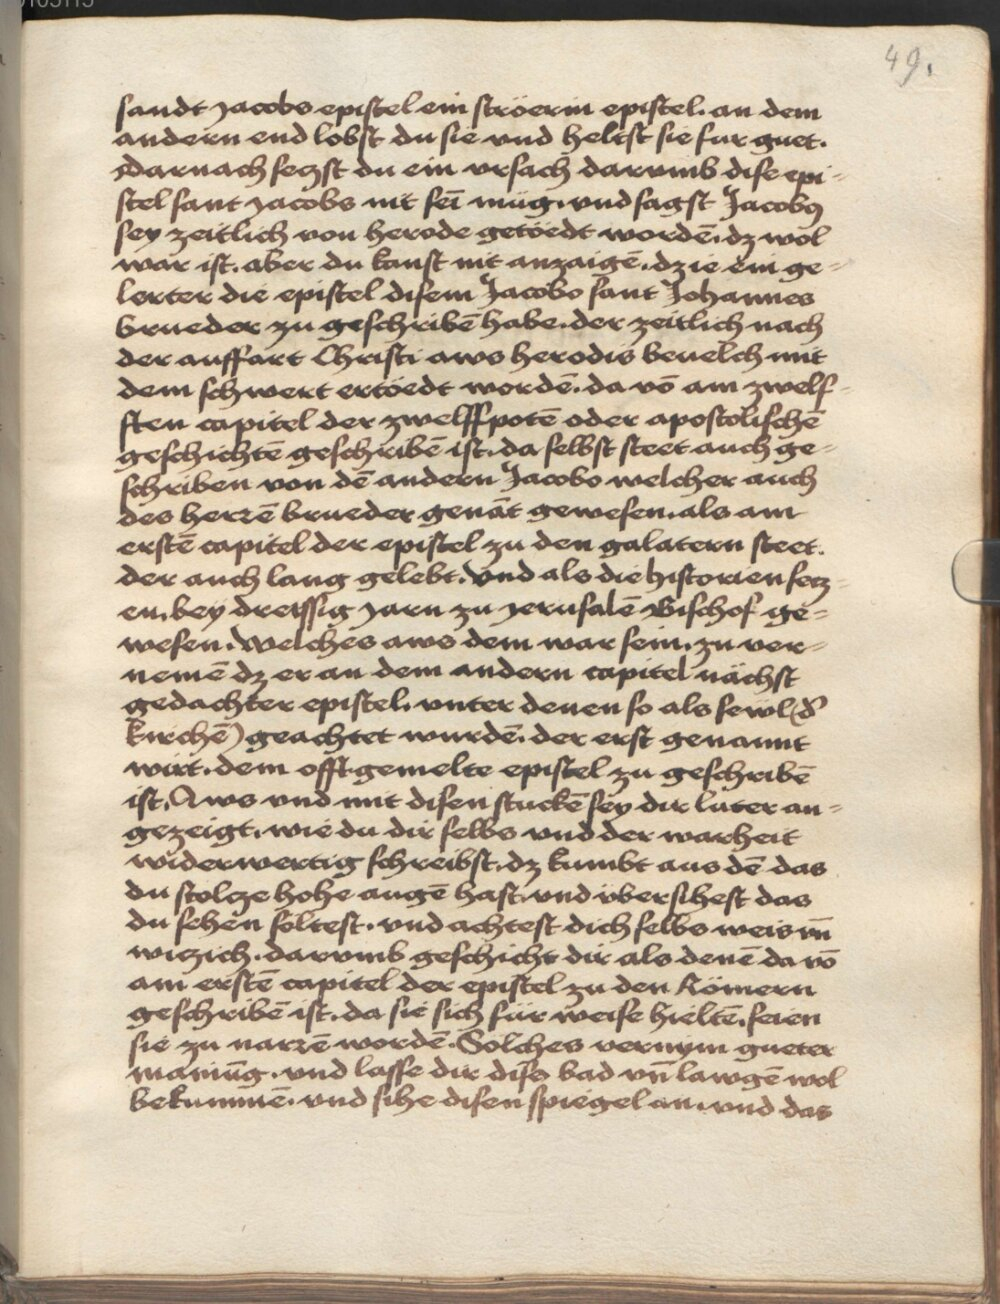 49.
sandt Jacobs epistel ein ströerin epistel. an dem
andern end lobst du sie vnd heltst sie fur guet.
Darnach setzst du ein vrsach darvmb dise epi-
stel sant Jacobs nit sei müg. vnd sagst Jacobus
sey zeitlich von herode getöedt wordē. dz wol
war ist. aber du kanst nit anzaigē. dz ie ein ge-
lerter die epistel disem Jacobo sant Johannes
brueder zu geschribē habe. der zeitlich nach
der auffart Christi aws herodis beuelch mit
dem schwert ertöedt wordē. da vō am zwelf-
sten capitel der zwelffpotē oder apostolischē
geschichtē geschribē ist. da selbst steet auch ge-
schriben von dē andern Jacobo welcher auch
des herzē brueder genāt gewesen. als am
erstē capitel der epistel zu den galatern steet.
der auch lang gelebt. vnd als die historien setz-
en. bey dreissig Jarn zu Jerusalē Bischof ge-
wesen. Welches aws dem war sein. zu ver-
nemē dz er an dem andern capitel nächst
gedachter epistel. vnter denen so als sewl (d'
kirchē) geachtet wurdē. der erst genannt
wirt. dem offtgemelte epistel zu geschribē
ist. Aws vnd mit disen stuckē sey dir luter an-
gezeigt. wie du dir selbs vnd der warheit
widerwertig schreibst. dz kumbt aus dē das
du stolze hohe augē hast. vnd vbersihest das
du sehen soltest. vnd achtest dich selbs weis vn̄
witzich. darvmb geschicht dir als denē da vō
am erstē capitel der epistel zu den Römern
geschribē ist. da sie sich für weise hieltē. seien
sie zu narrē wordē. Solches vernym gueter
mainūg. vnd lasse dir diss bad vn̄ lawgē wol
bekummē. vnd sihe disen spiegel an. vnd das